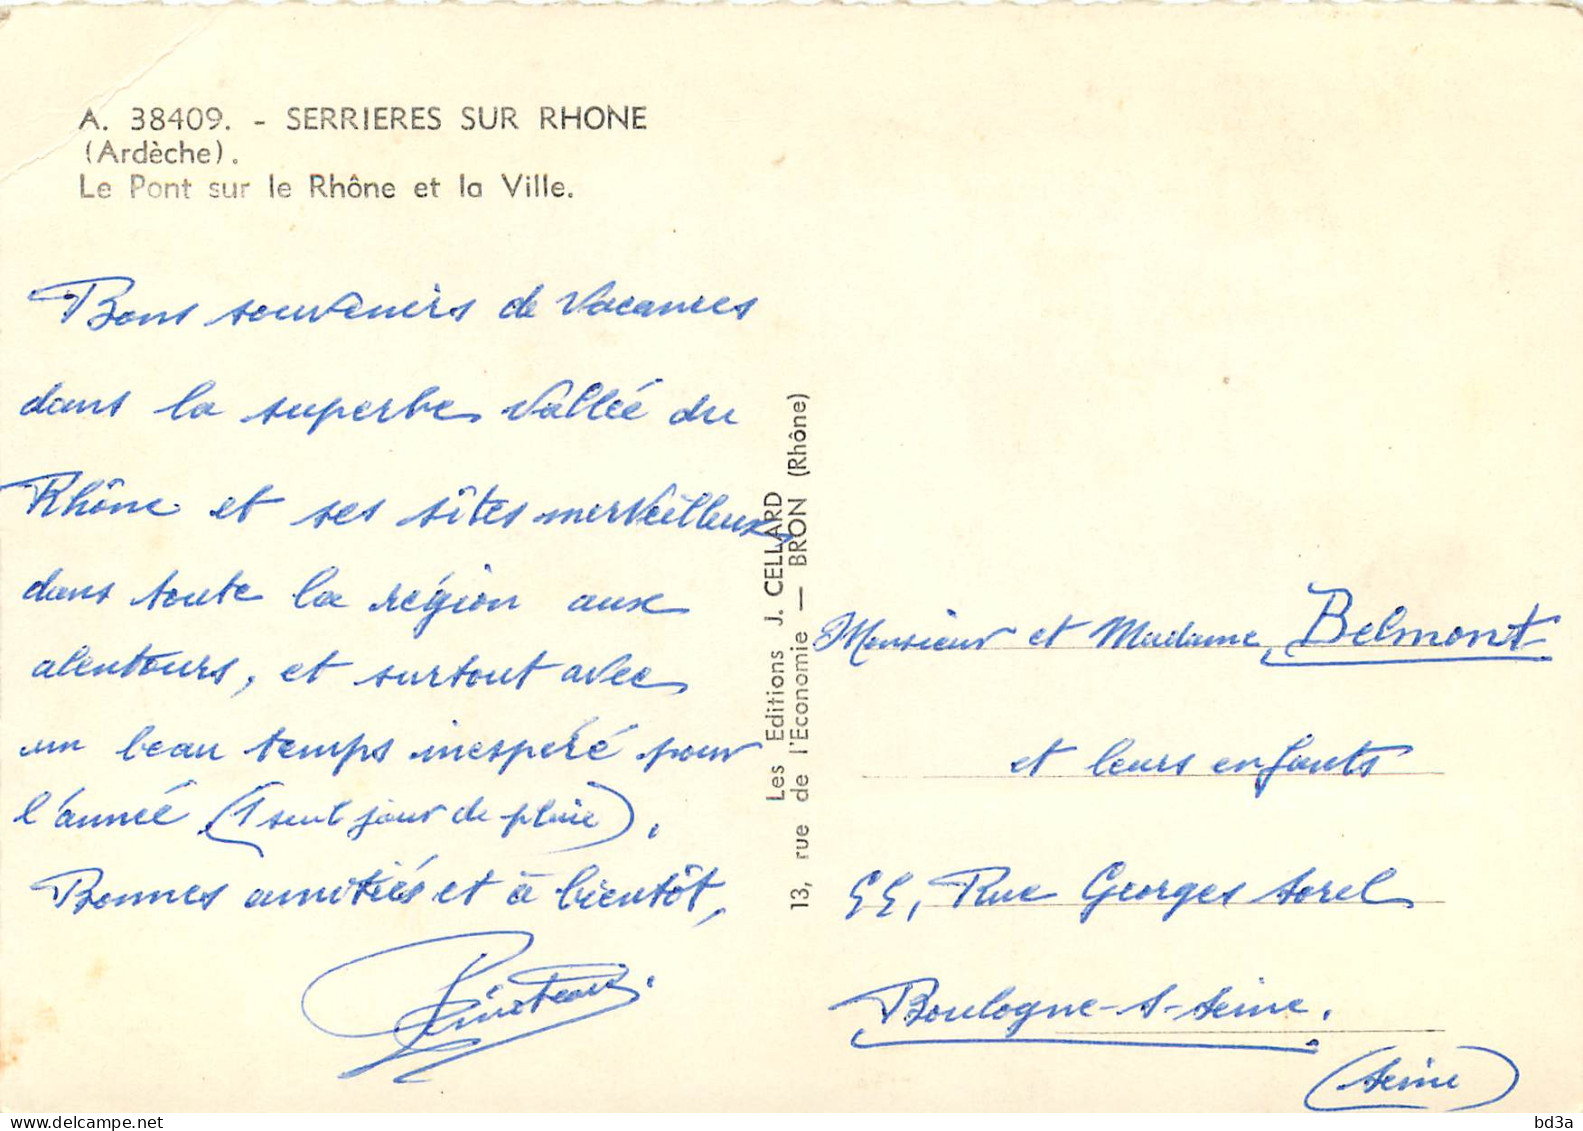 A. 38409. - SERRIERES SUR RHONE
(Ardèche).
Le Pont sur le Rhône et la Ville.
Bons souvenirs de vacances
dans la superbe vallée du
Rhône et ses sites merveilleux
dans toute la région aux
alentours, et surtout avec
un beau temps inespéré pour
l'année (1 seul jour de pluie).
Bonnes amitiés et à bientôt,
Les Editions J. CELLARD
13, rue de l'Economie — BRON (Rhône)
Monsieur et Madame Belmont
et leurs enfants
Rue Georges Sorel
Boulogne-s-Seine.
(Seine)
delcampe.net
bd3a